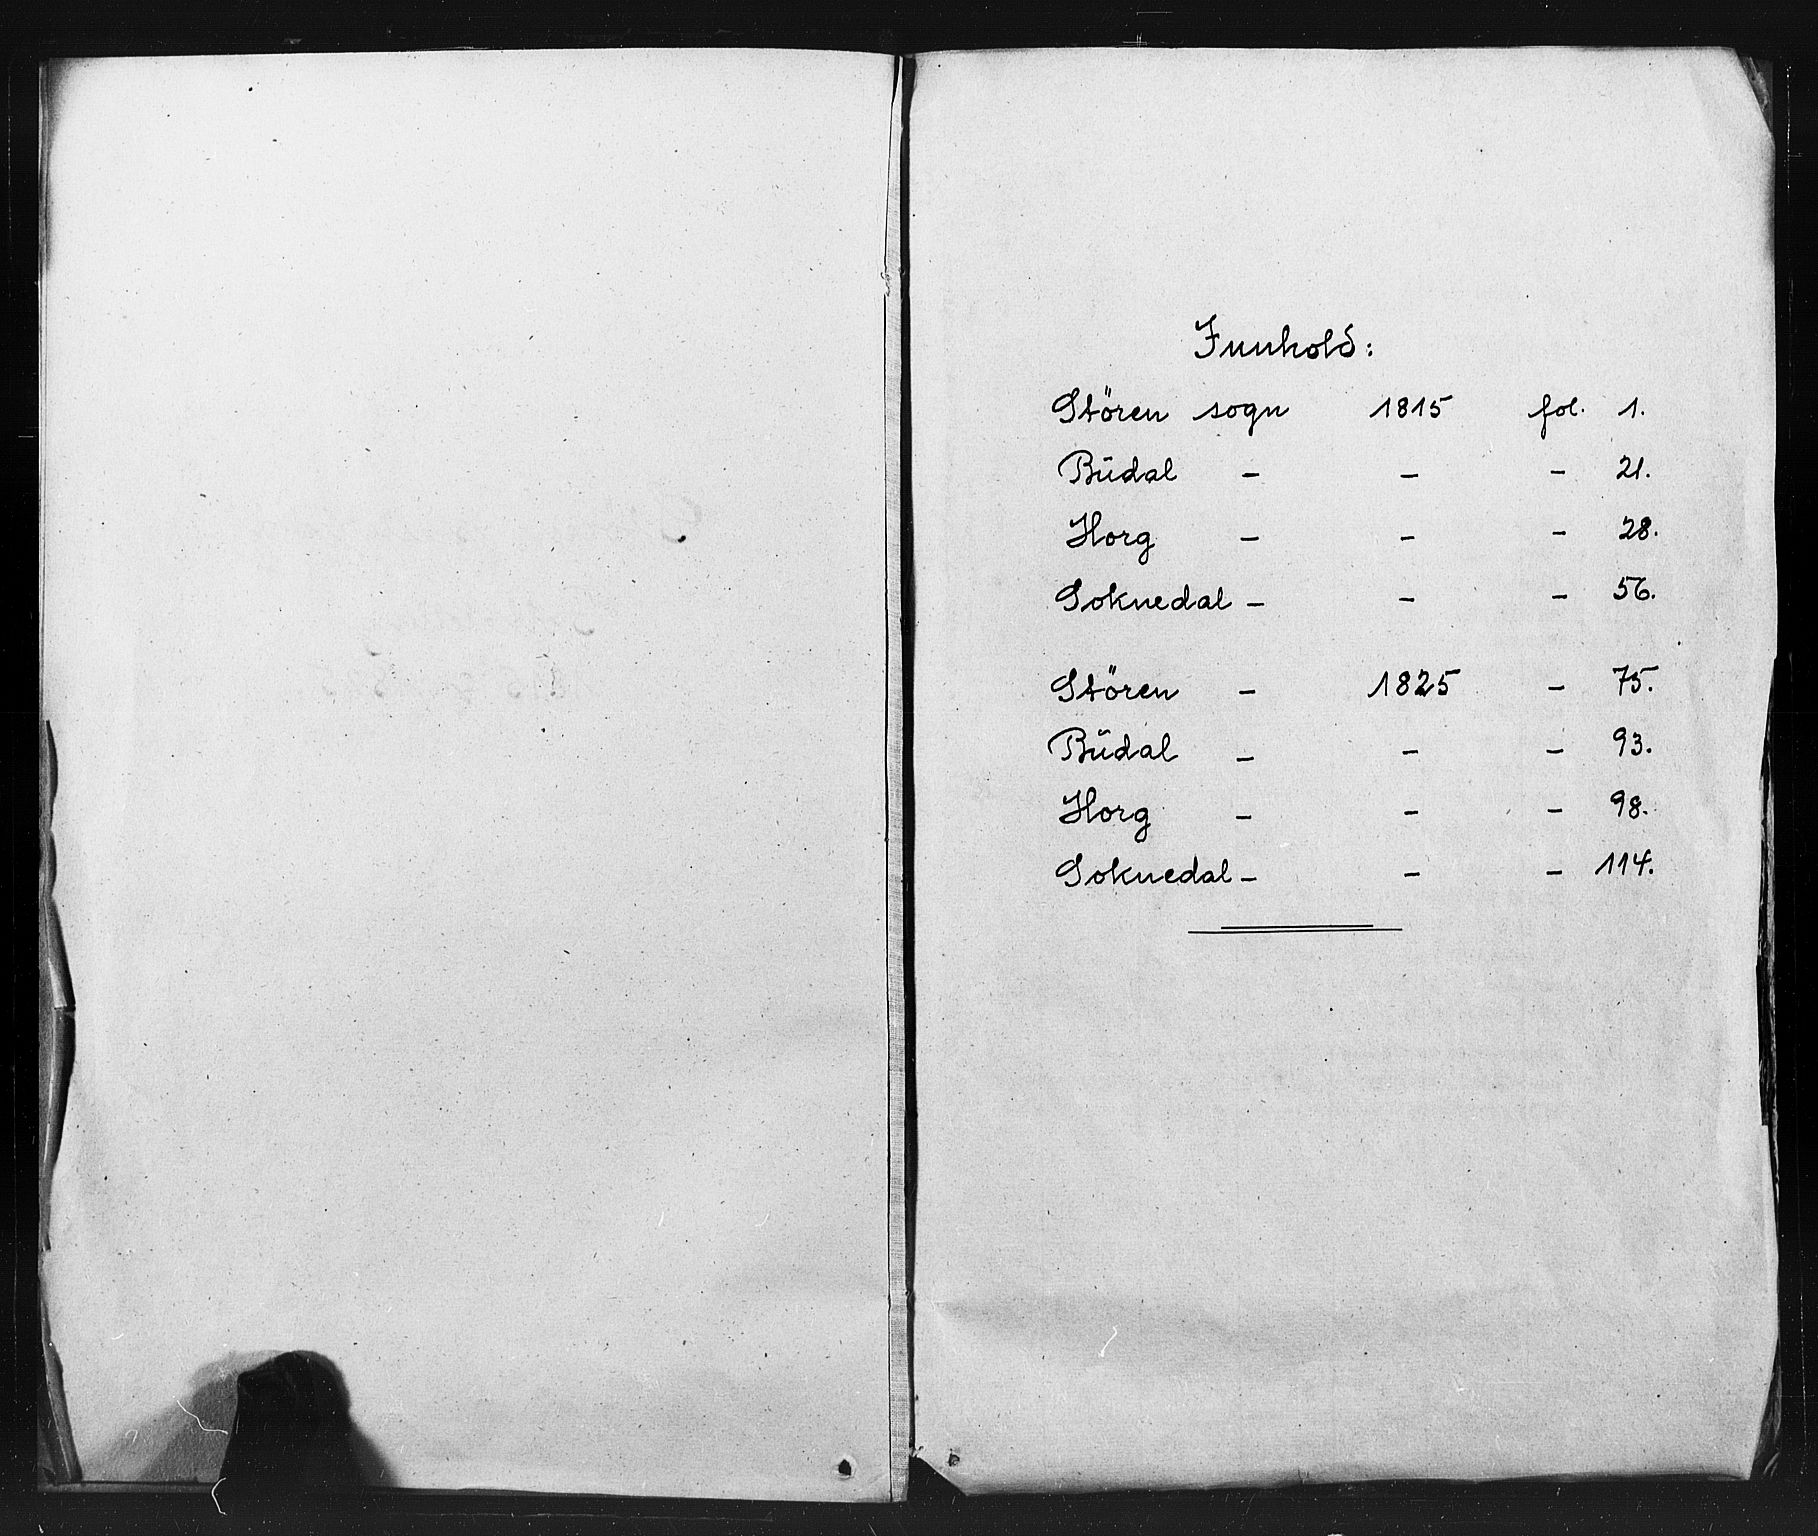 Innhold:
Stören sogn 1815 fol. 1.
Budal - - - 21.
Horg - - - 28.
Soknedal - - - 56.
Stören - 1825 - 75.
Budal - - - 93.
Horg - - - 98.
Soknedal - - - 114.